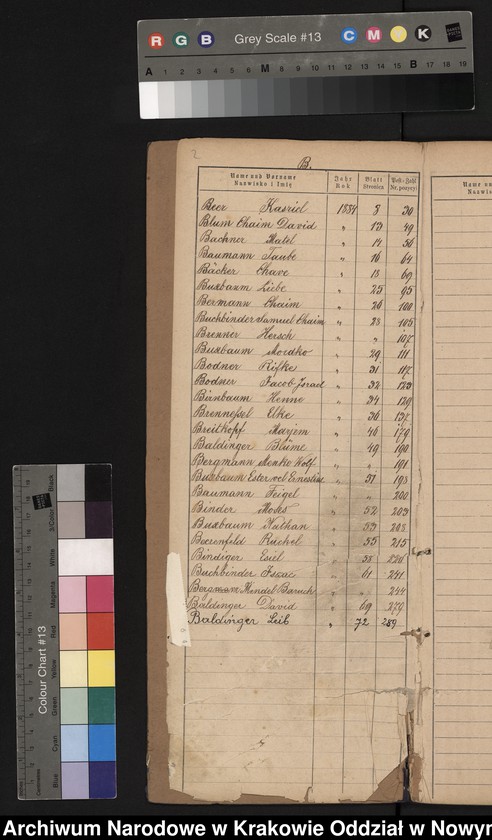 R G B Grey Scale #13 C M Y K
A 1 2 3 4 5 6 M 8 9 10 11 12 13 14 15 B 17 18 19
2
B.
Name und Vorname Jahr Blatt Post-Zahl
Nazwisko i Imię Rok Stronica Nr. pozycyi
Beer Kasriel 1884 8 30
Blum Chaim David " 13 49
Bachner Matel " 14 56
Baumann Taube " 16 64
Bäcker Chave " 18 69
Buxbaum Liebe " 25 95
Bermann Chaim " 26 100
Buchbinder Samuel Chaim " 28 105
Brenner Hersch " " 107
Buxbaum Mordko " 29 111
Bodner Rifke " 31 117
Bodner Jacob Israel " 32 123
Birnbaum Henne " 34 129
Brennessel Elke " 36 137
Breitkopf Marjem " 46 179
Baldinger Blüme " 49 190
Bergmann Menko Wolf " " 191
Buxbaum Ester vel Ernestine " 51 198
Baumann Feigel " " 200
Binder Moses " 52 203
Buxbaum Nathan " 53 208
Beerenfeld Ruchel " 55 215
Bindiger Esiel " 58
Buchbinder Isaac " 61 241
Mendel Baruch " " 244
Baldinger David " 69 279
Baldinger Leib " 72 289
Name und
Nazwisko
Colour Chart #13
Blue Cyan Green Yellow Red Magenta White 3/Color Black
Archiwum Narodowe w Krakowie Oddział w Nowym